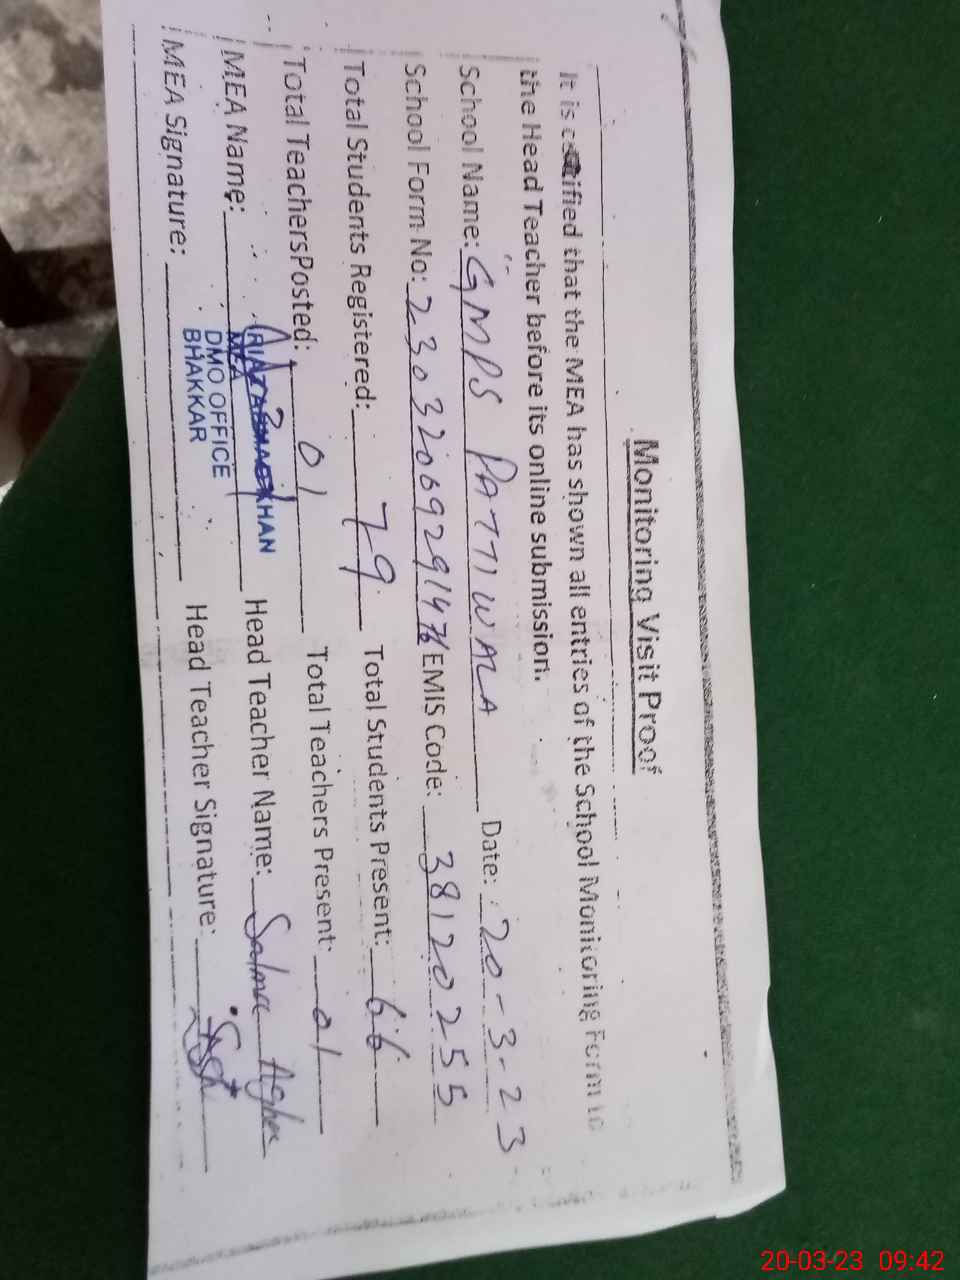 Monitoring Visit Proof
It is certified that the MEA has shown all entries of the School Monitoring Form to
the Head Teacher before its online submission.
School Name: GMPS PATTIWALA Date: 20-3-23
School Form No: 2303206929147 EMIS Code: 38120255
Total Students Registered: 79 Total Students Present: 66
Total TeachersPosted: 01 Total Teachers Present: 01
MEA Name: Head Teacher Name: Salma
KHAN
MEA
MEA Signature: Head Teacher Signature:
DMO OFFICE
BHAKKAR
20-03-23 09:42